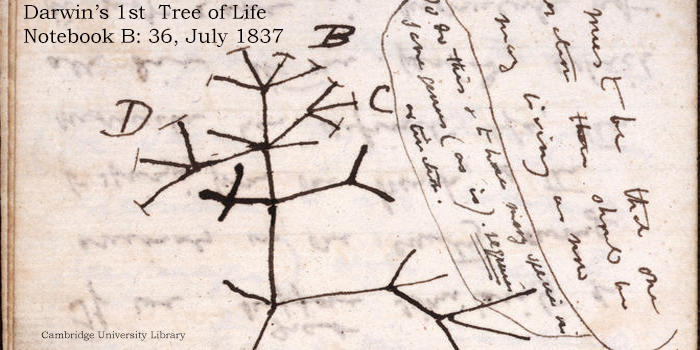 Darwin's 1st Tree of Life
Notebook B: 36, July 1837
B
C
D
must be that one
then should be
many living as now
To do this & to have many species in
same genus (as is). requires
extinction.
Cambridge University Library